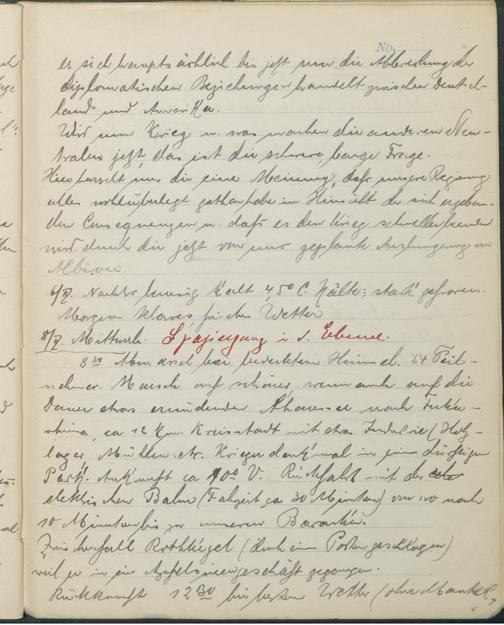 No.
es sich hauptsächlich bis jetzt um die Abbrechung der
diplomatischen Beziehungen handelt zwischen Deutsch-
land und Amerika.
Wird nun Krieg u. was machen die anderen Neu-
tralen jetzt, das ist die schwere, bange Frage.
Hier herrscht nur die eine Meinung, dass unsere Regierung
alles wohlüberlegt gethan habe im Hinsicht der sich ergeben-
den Consequenzen u. dass es den Krieg schneller beenden
wird durch die jetzt von uns geplante Aushungerung von
Albion.
6/II. Nachts kalt 4,50 C. Kälte: stark gefroren.
Morgen klares Wetter
8/II. Mittwoch. Spaziergang i. d. Ebene.
8 30 Abmarsch bei bedecktem Himmel. 64 Teil-
nehmer. Marsch auf schöner, wenn auch auf die
Dauer etwas ermüdender Chaussee nach
ca 12 km. Kreisstadt mit etwas Industrie (Holz-
lager Mühlen etc. Kriegerdenkmal in ein dürftigen
Park. Ankunft ca V. Rückfahrt mit der
elektrischen Bahn (Fahrzeit ca 30 Minuten) von wo noch
10 Minuten bis zu unserer Baracke.
Zwischenfall Rothkegel (durch ein Posten geschlagen)
weil er in ein Apfelsinengeschäft gegangen.
Rückkunft 12 30 bei bestem Wetter (ohne Mantel),